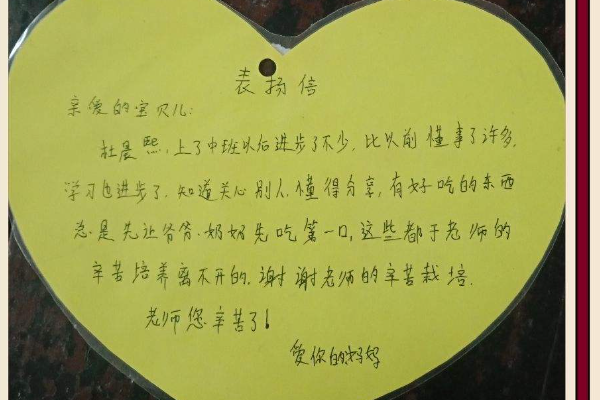 表扬信
亲爱的宝贝儿:
杜晨熙,上了中班以后进步了不少,比以前懂事了许多,
学习也进步了.知道关心别人.懂得分享,有好吃的东西
总是先让爷爷.奶奶先吃第一口,这些都于老师的
辛苦培养离不开的.谢谢老师的辛苦栽培.
老师您辛苦了!
爱你的妈妈